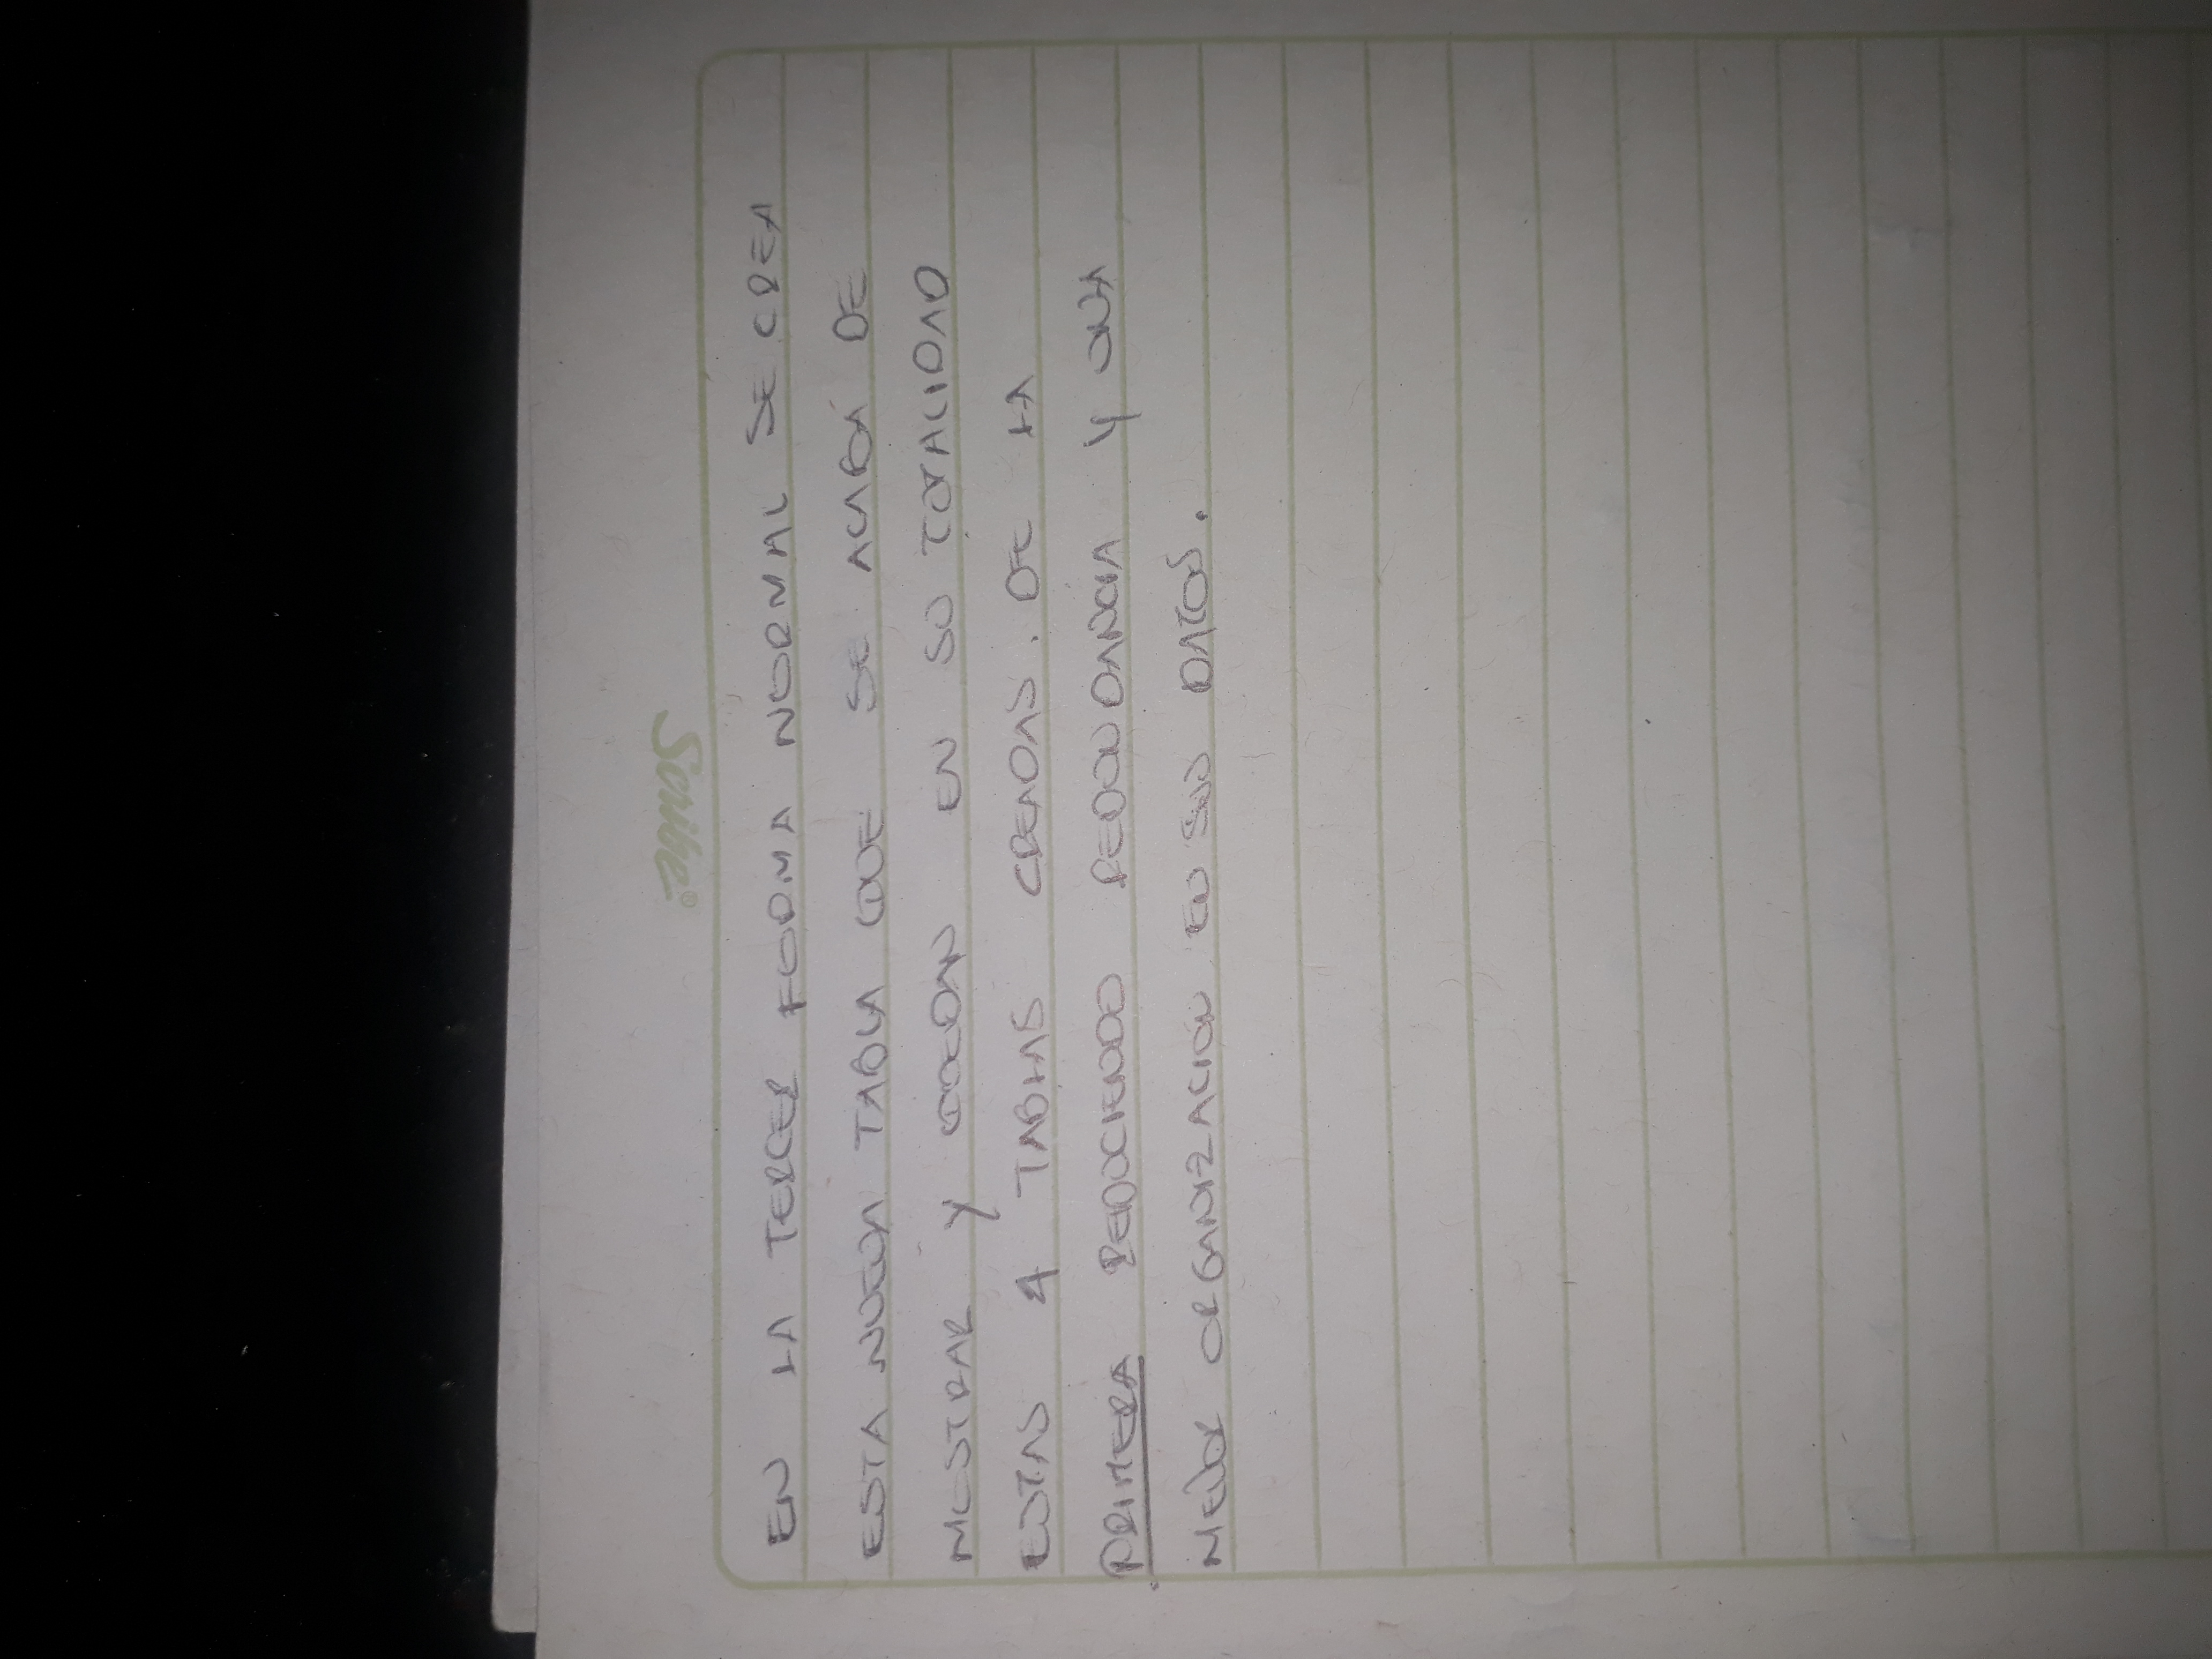 Scribe®
EN LA TERCER FORMA NORMAL SE CREA
ESTA NUEVA TABLA QUE SE ACABA DE
MOSTRAR Y QUEDAN EN SU TOTALIDAD
ESTAS 4 TABLAS CREADAS. DE LA
PRIMERA REDUCIENDO REDUNDANCIA Y UNA
MEJOR ORGANIZACIÓN EN SUS DATOS.